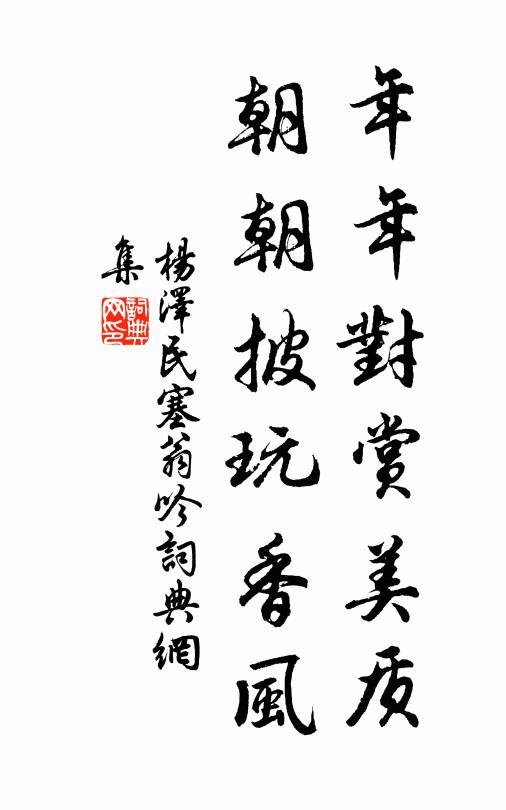 年年對賞美质
朝朝披玩香風
楊澤民塞翁吟詞典網
集
詞典网印